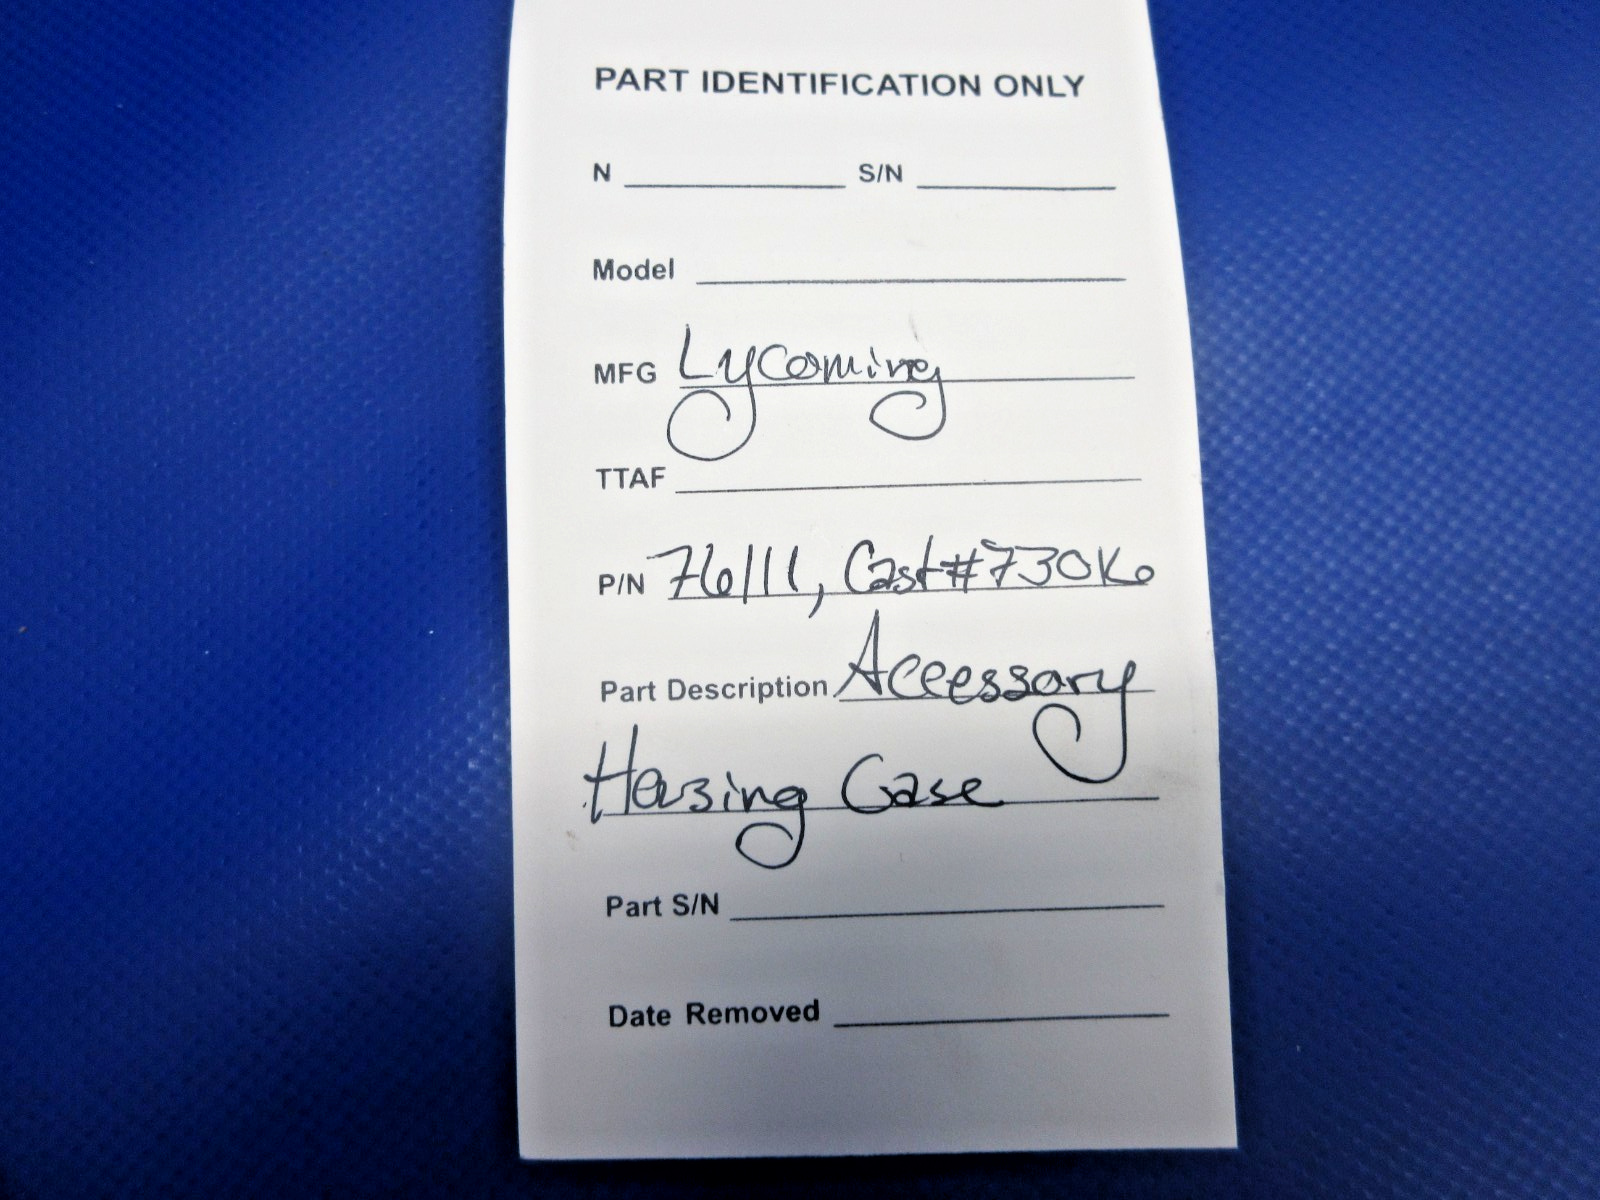 PART IDENTIFICATION ONLY
N S/N
Model
MFG Lycoming
TTAF
P/N 76111, Cast#730K6
Part Description Accessory
Housing Case
Part S/N
Date Removed